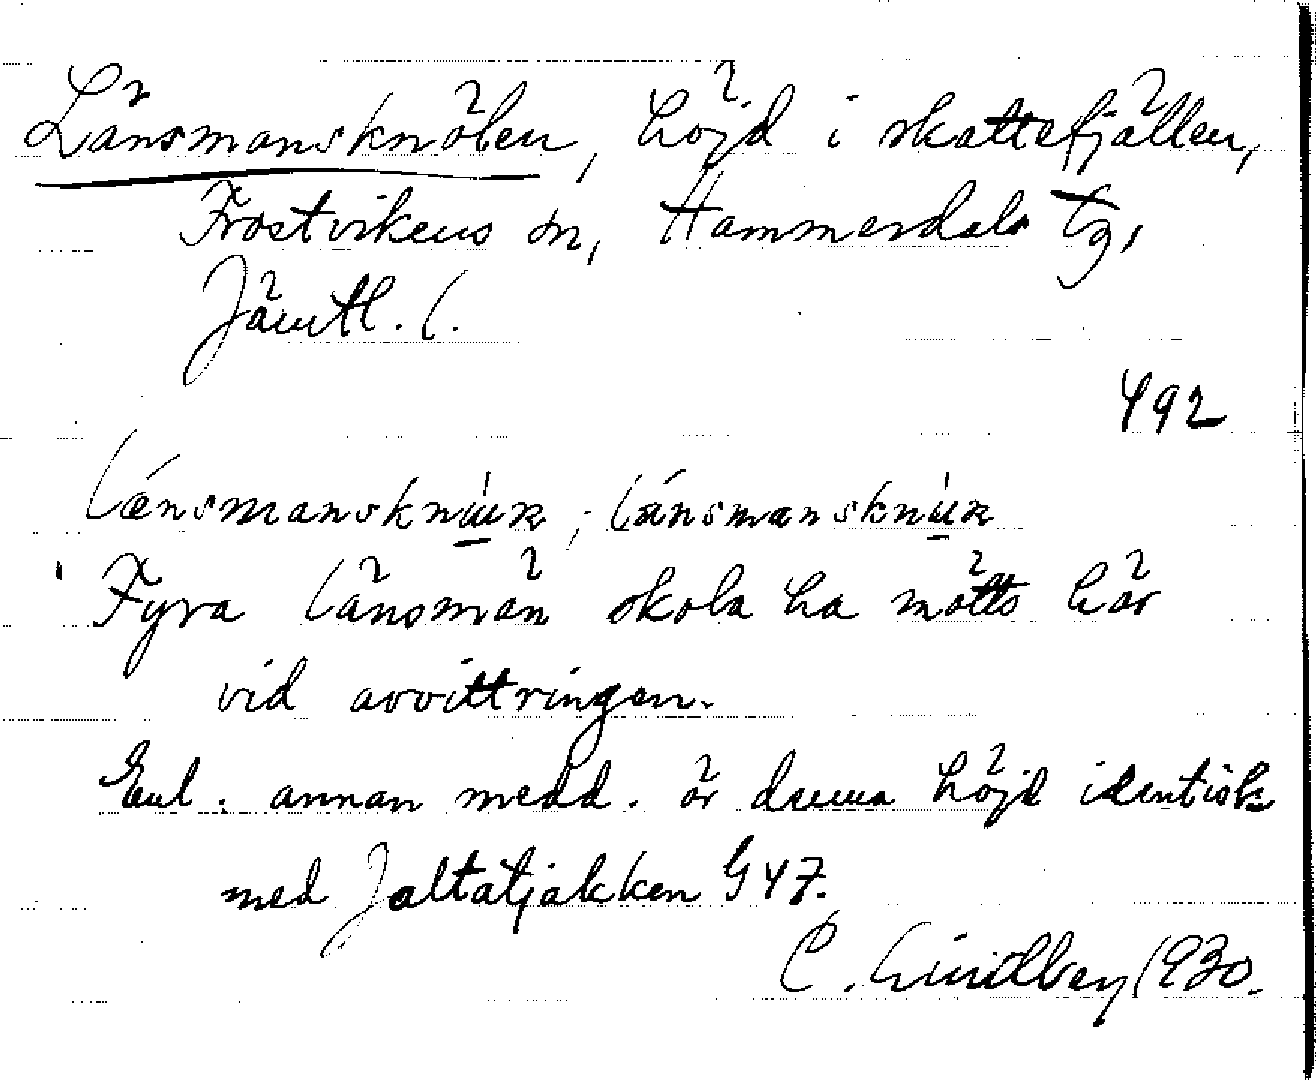 Länsmansknölen, höjd i skattefjällen,
Frostvikens sn, Hammerdals tg,
Jämtl. l.
492
Fyra länsmän skola ha mötts här
vid avvittringen.
Enl. annan medd. är denna höjd identisk
med Jaltatjakken G 47.
C. Lindberg 1930.